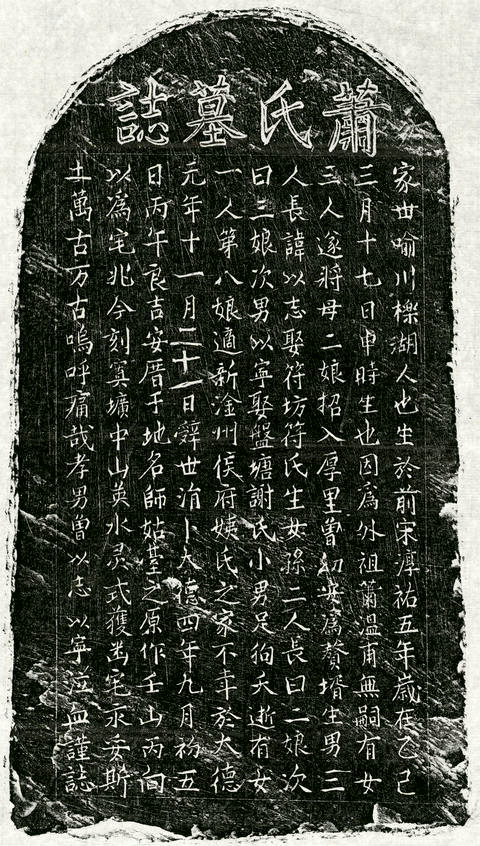 蕭氏墓誌
家世喻川櫟湖人也生於前宋淳祐五年歲在乙巳
三月十七日申時生也因爲外祖蕭溫甫無嗣有女
三人遂將母二娘招入厚里曾幼爲贅壻生男三
人長諱以志娶符坊符氏生女孫二人長曰二娘次
曰三娘次男以寧娶盤塘謝氏小男足狗夭逝有女
一人第八娘適新淦州侯府姨氏之家不幸於大德
元年十一月二十一日辭世涓卜大德四年九月初五
日丙午良吉安厝于地名師姑之原作壬山丙向
以爲宅兆今刻寘壙中山英水灵式獲宅永妥斯
土萬古万古嗚呼痛哉孝男曾以志以寧泣血謹誌